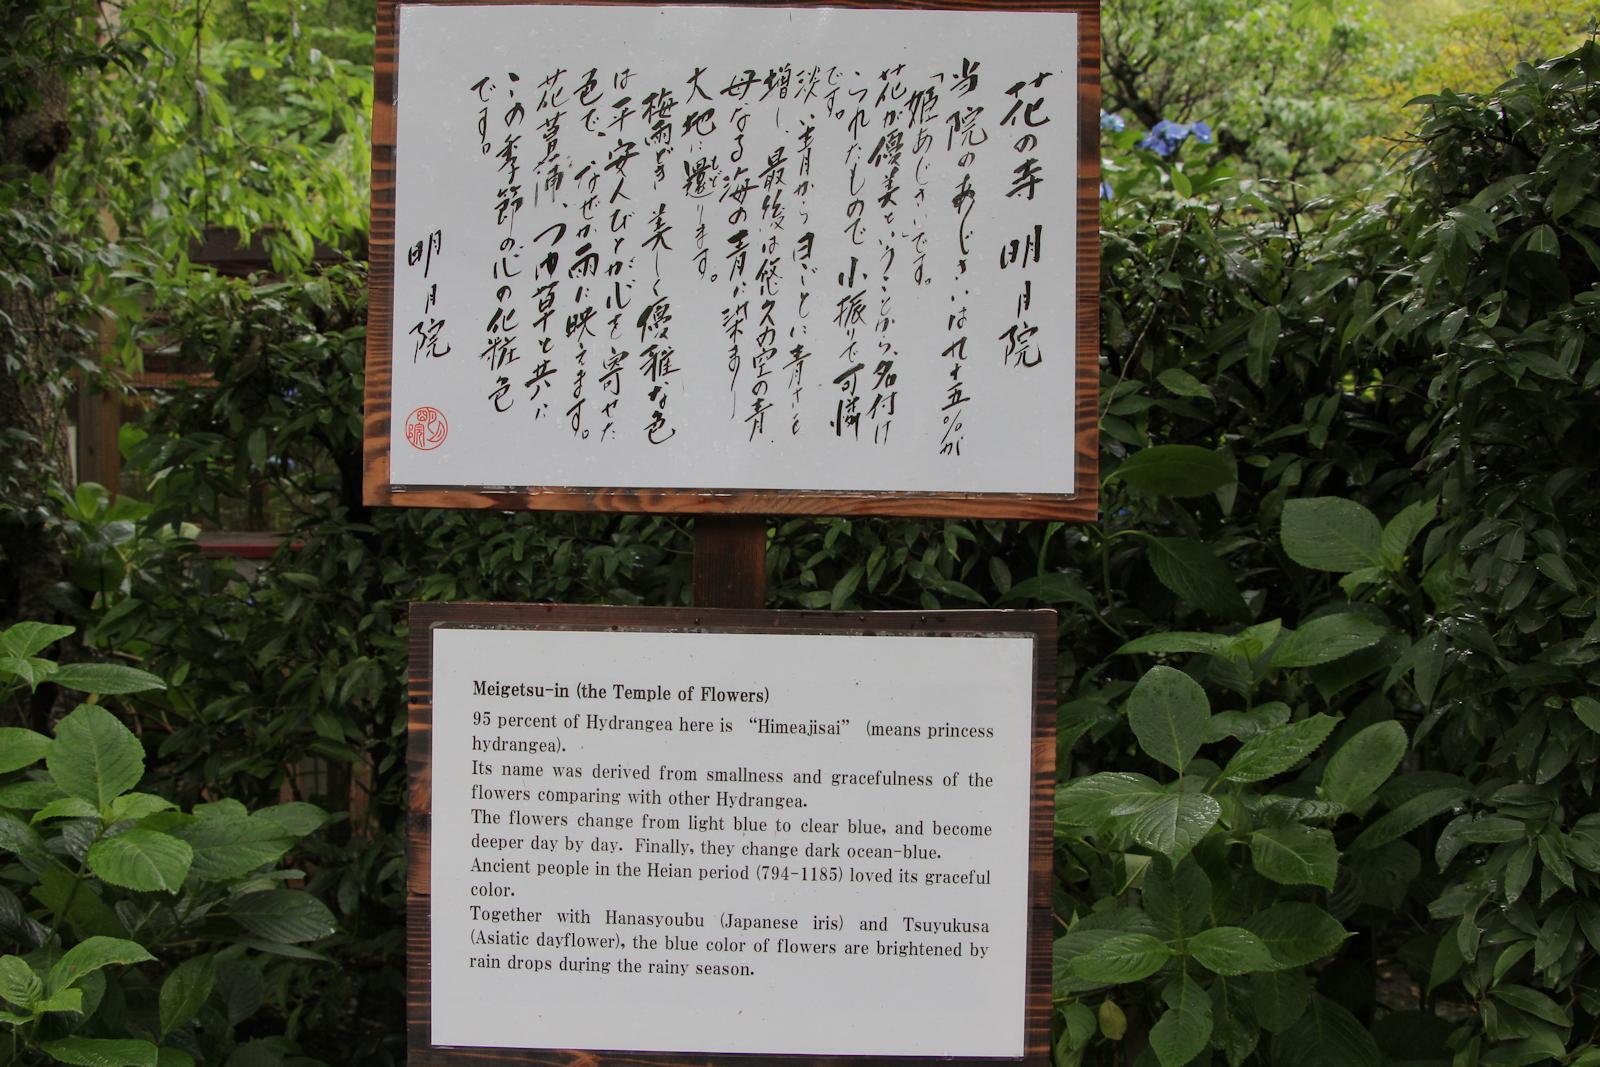 花の寺 明月院
当院のあじさいは九十五%が
「姫あじさい」です。
花が優美ということから、名付け
られたもので小振りで可憐
です。
淡い青から日ごとに青さを
増し、最後は悠久の空の青
母なる海の青に染まり
大地に還ります。
もど
梅雨どき 美しく優雅な色
は平安人びとが心を寄せた
色で、なぜか雨に映えます。
花菖蒲、つゆ草と共に
この季節の心の化粧色
です。
明月院
Meigetsu-in (the Temple of Flowers)
95 percent of Hydrangea here is “Himeajisai” (means princess
hydrangea).
Its name was derived from smallness and gracefulness of the
flowers comparing with other Hydrangea.
The flowers change from light blue to clear blue, and become
deeper day by day. Finally, they change dark ocean-blue.
Ancient people in the Heian period (794-1185) loved its graceful
color.
Together with Hanasyoubu (Japanese iris) and Tsuyukusa
(Asiatic dayflower), the blue color of flowers are brightened by
rain drops during the rainy season.